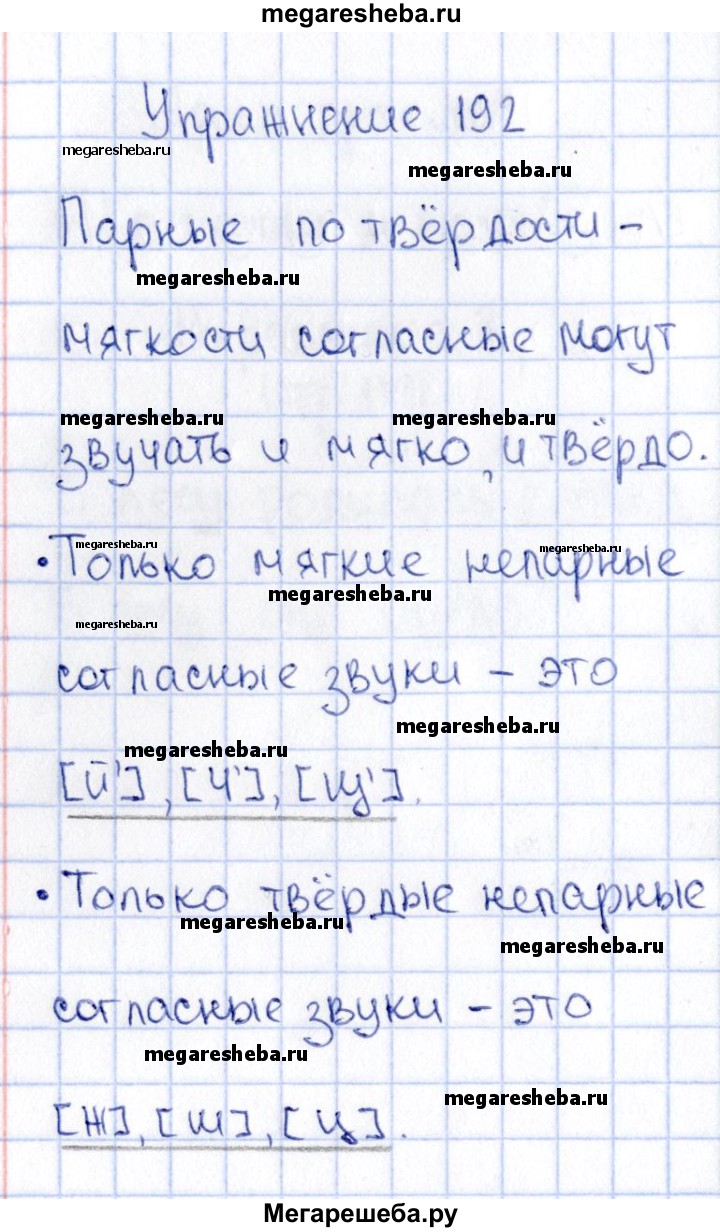 megaresheba.ru
Упражнение 192
megaresheba.ru
megaresheba.ru
Парные по твёрдости –
megaresheba.ru
мягкости согласные могут
megaresheba.ru megaresheba.ru
звучать и мягко, и твёрдо.
megaresheba.ru megaresheba.ru
• Только мягкие непарные
megaresheba.ru
megaresheba.ru
согласные звуки – это
megaresheba.ru
megaresheba.ru
[й'], [ч'], [щ'].
• Только твёрдые непарные
megaresheba.ru
megaresheba.ru
согласные звуки – это
megaresheba.ru
megaresheba.ru
[ж], [ш], [ц].
Мегарешеба.ру